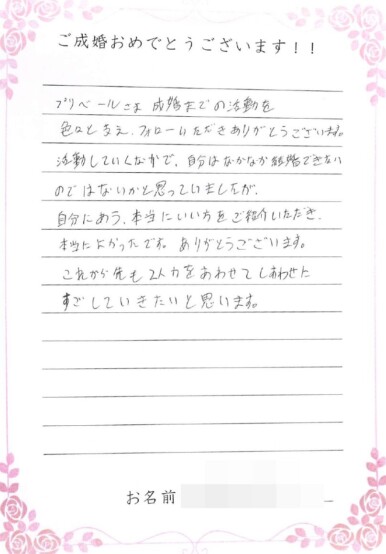 ご成婚おめでとうございます！！
プリベールさま 成婚までの活動を
色々と支え、フォローいただきありがとうございます。
活動していくなかで、自分はなかなか結婚できない
のではないかと思っていましたが、
自分にあう、本当にいい方をご紹介いただき、
本当によかったです。ありがとうございます。
これから先も2人力をあわせてしあわせに
すごしていきたいと思います。
お名前